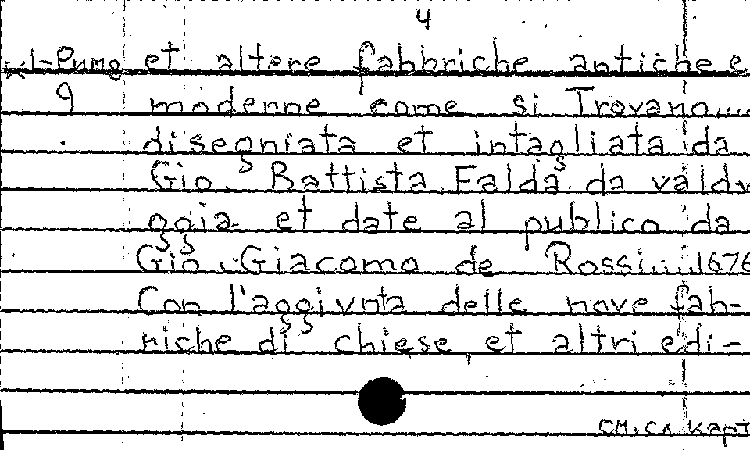 4
et altere fabbriche antiche e
9 moderne come si Trovano.....
disegniata et intagliata da
Gio. Battista Falda da valdu
ggia et date al publico da
Gio. Giacomo de Rossi.....1676
Con l'aggivnta delle nove fab-
riche di chiese et altri edi-